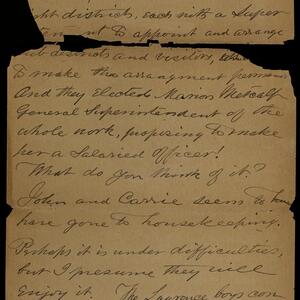 ight districts, each with a Super
nt to appoint and arrange
districts and visitors,
to make this arrangment perman
And they elected Marion Metcalf
General Superintendent of the
whole work, proposing to make
her a Salaried Officer!
What do you think of it?
John and Carrie seem to
have gone to housekeeping.
Perhaps it is under difficulties,
but I presume they will
Enjoy it. The Lawrence boys con